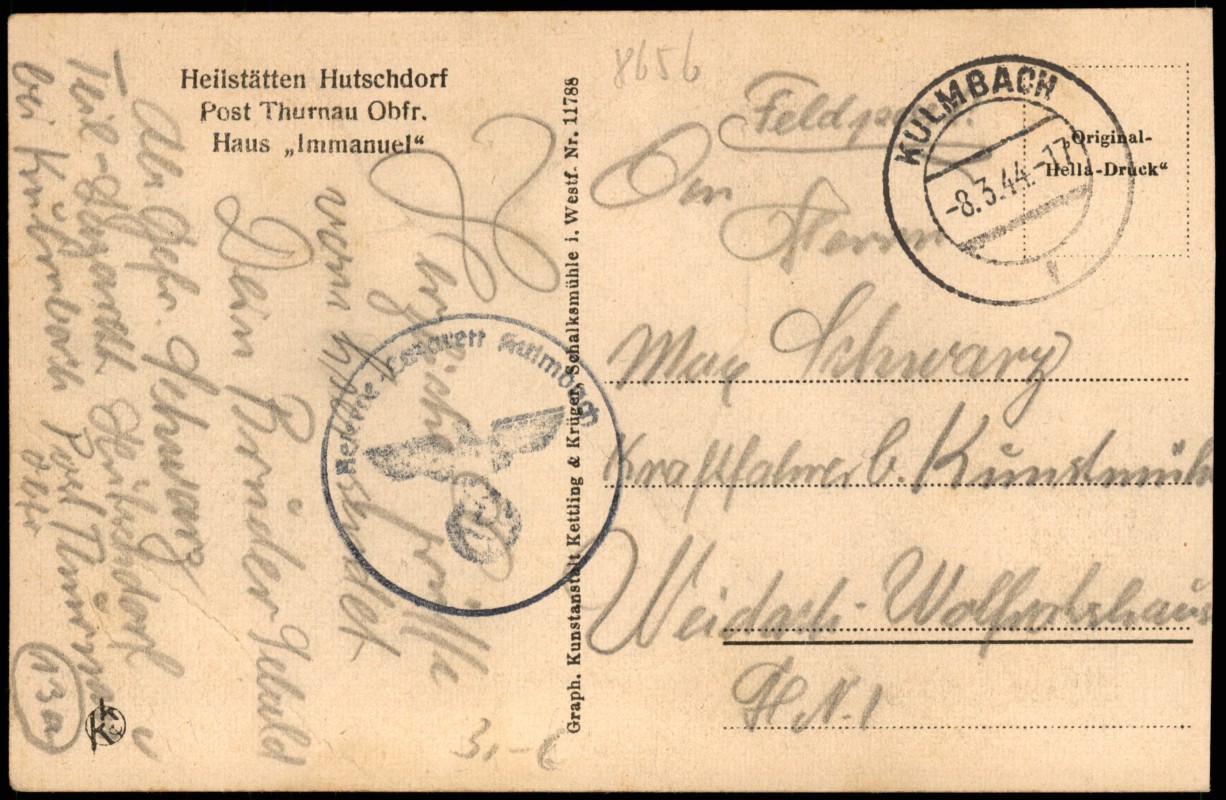 Heilstätten Hutschdorf
Post Thurnau Obfr.
Haus „Immanuel“
Herzliche Grüße
von
sendet
Dein Bruder
Abs. Gefr. Schwarz
Teil-Lazarett Hutschdorf
bei Kulmbach Post Thurnau
13a
3,-€
Reserve-Lazarett Kulmbach
Graph. Kunstanstalt Kettling & Krüger, Schalksmühle i. Westf. Nr. 11788
8656
Feldpost.
KULMBACH
-8.3.44.-17
„Original-
Hella-Druck“
An
Herrn
Max Schwarz
Kraftfahrer b. Kunstmühl
Weidach-Wolfratshaus
H.N.1